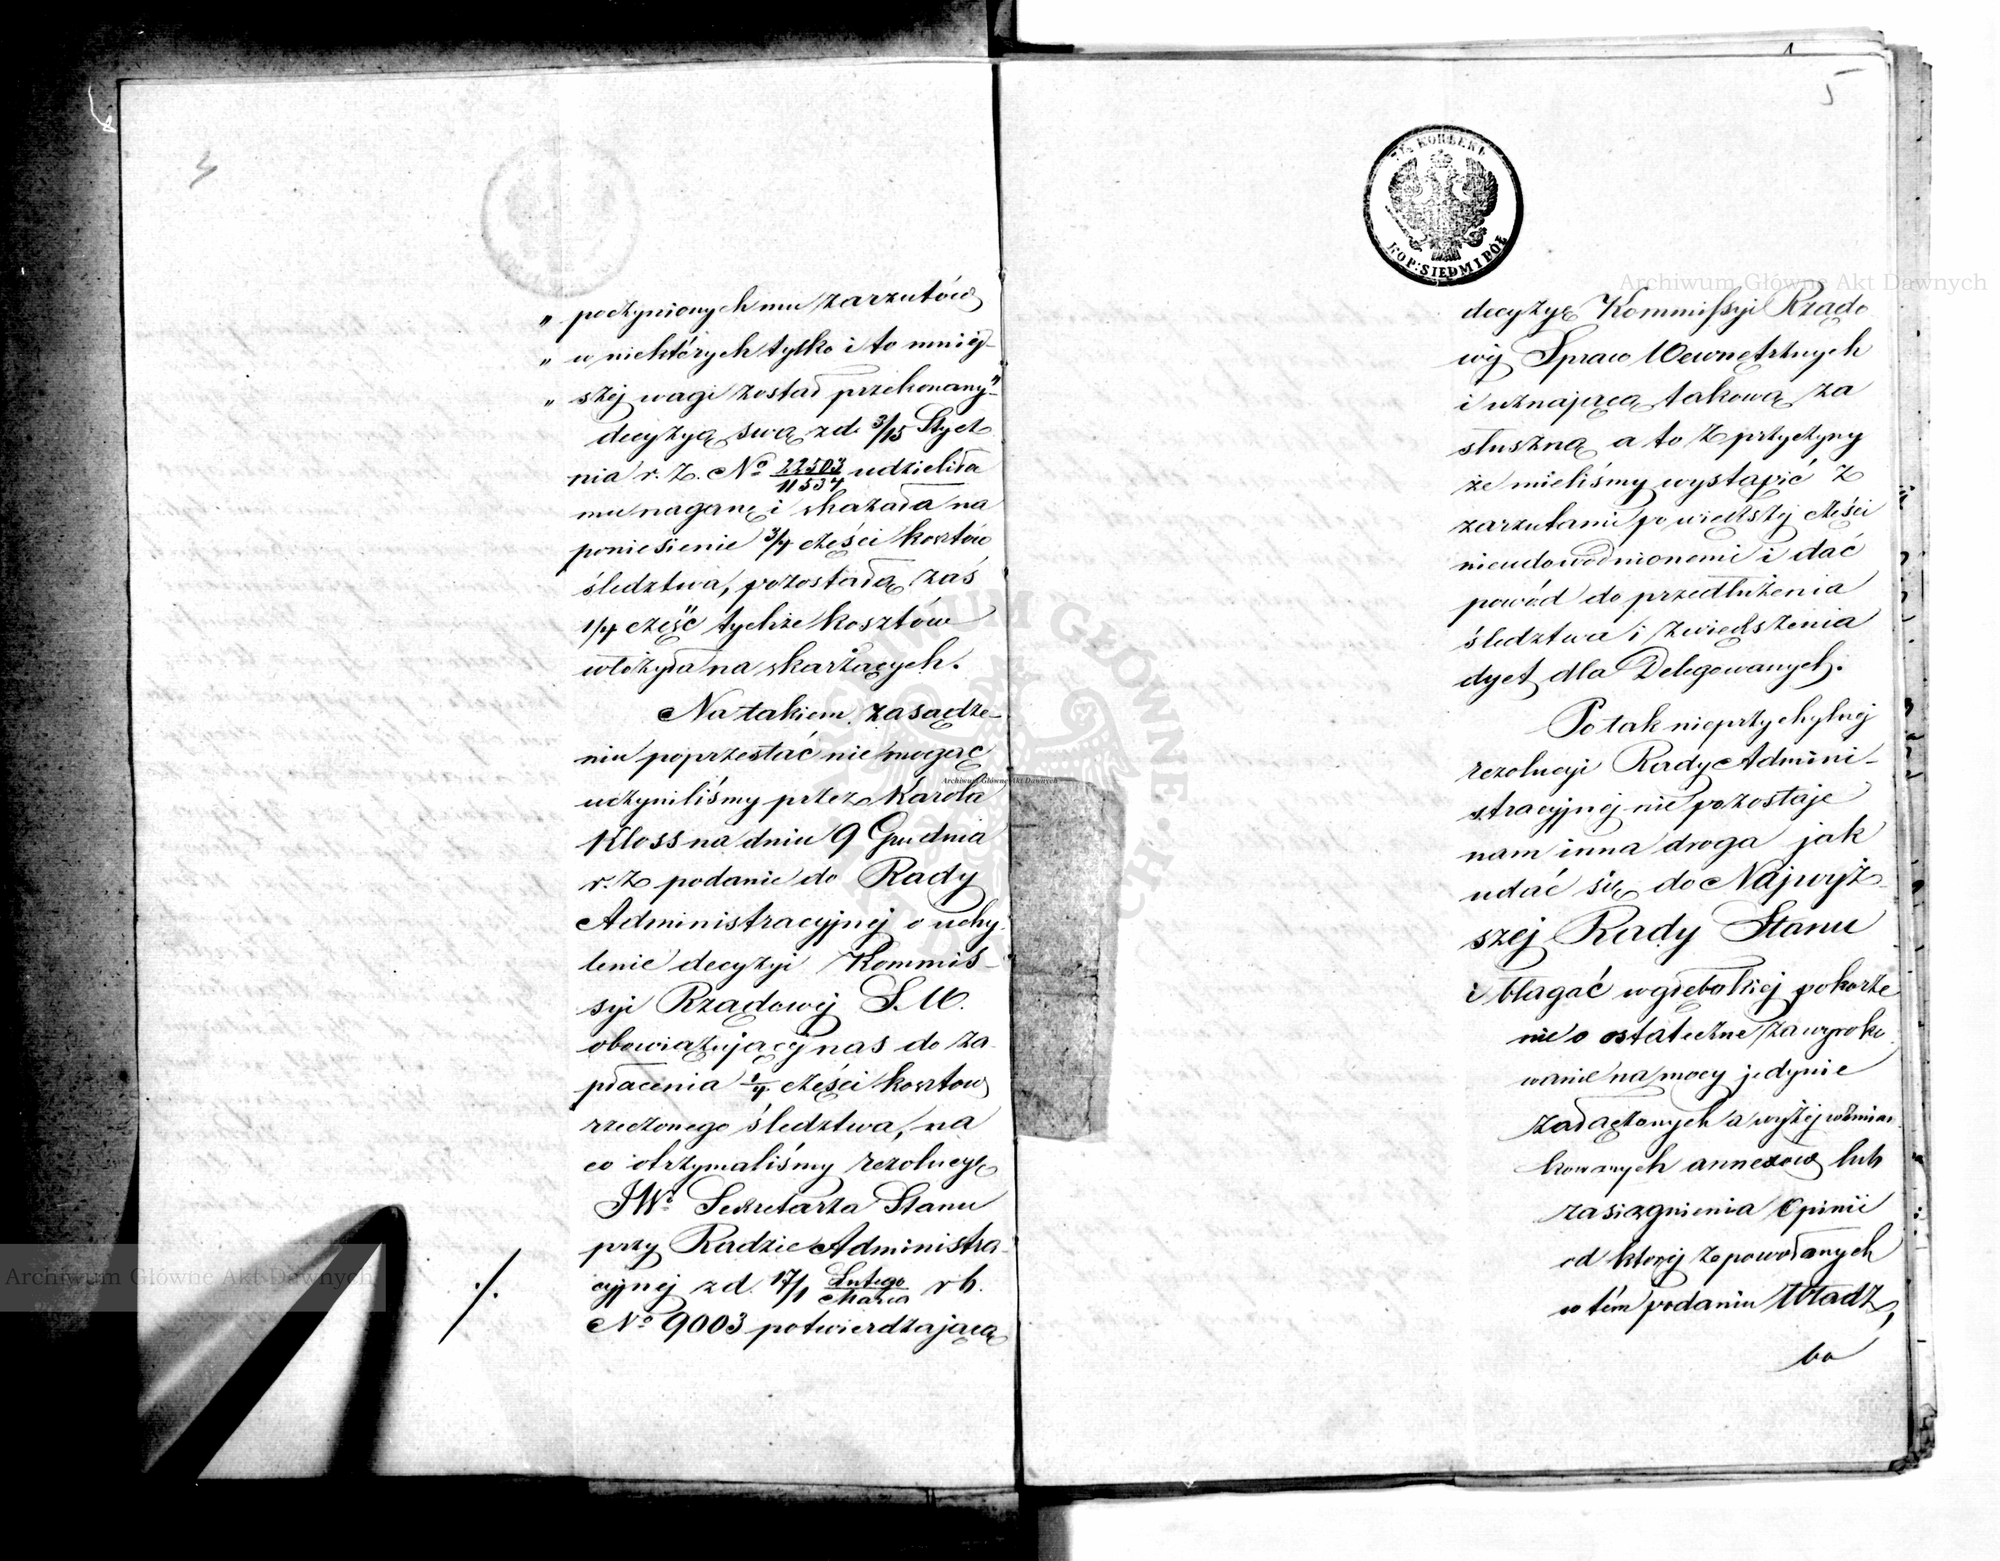 4
„ poczynionych mu zarzutów
„ w niektórych tylko i to mniej-
„ széj wagi został przekonany"
decyzyą swą z d. 3/15 Stycz
nia r. z. No 22503/11537 udzieliła
mu naganę i skazała na
poniesienie 3/4 części kosztów
śledztwa, pozostałą zaś
1/4 część tychże kosztów
włożyła na skarżących.
Na takiem zasądze-
niu poprzestać nie mogąc
uczyniliśmy przez Karola
Kloss na dniu 9 Grudnia
r. z podanie do Rady
Administracyjnéj o uchy
lenie decyzyi Kommis-
syi Rządowéj S. W.
obowiązującéj nas do za-
płacenia 1/4 części kosztow
rzeczonego śledztwa, na
co otrzymaliśmy rezolucyę
JWo Sekretarza Stanu
przy Radzie Administra-
cyjnéj z d. 17/1 Lutego/Marca r b.
No 9003 potwierdzającą
./.
5
KOP: SIEDM I PÓŁ
decyzyę Kommissyi Rządo
wéj Spraw Wewnętrznych
i uznającą takową za
słuszną a to z przyczyny
że mieliśmy wystąpić z
zarzutami po większéj części
nieudowodnionemi i dać
powód do przedłużenia
śledztwa i zwiększenia
dyet dla Delegowanych.
Po tak nieprzychylnéj
rezolucyi Rady Admini-
stracyjnéj nie pozostaje
nam inna droga jak
udać się do Najwyż-
széj Rady Stanu
i błagać w głębokiéj pokorze
nie o ostateczne zawyroko
wanie na mocy jedynie
załączonych a wyżéj wzmian
kowanych annexów lub
zasiągnienia Opinii
od któréj z powołanych
w tém podaniu Władz,
bo
Archiwum Główne Akt Dawnych
Archiwum Główne Akt Dawnych
Archiwum Główne Akt Dawnych